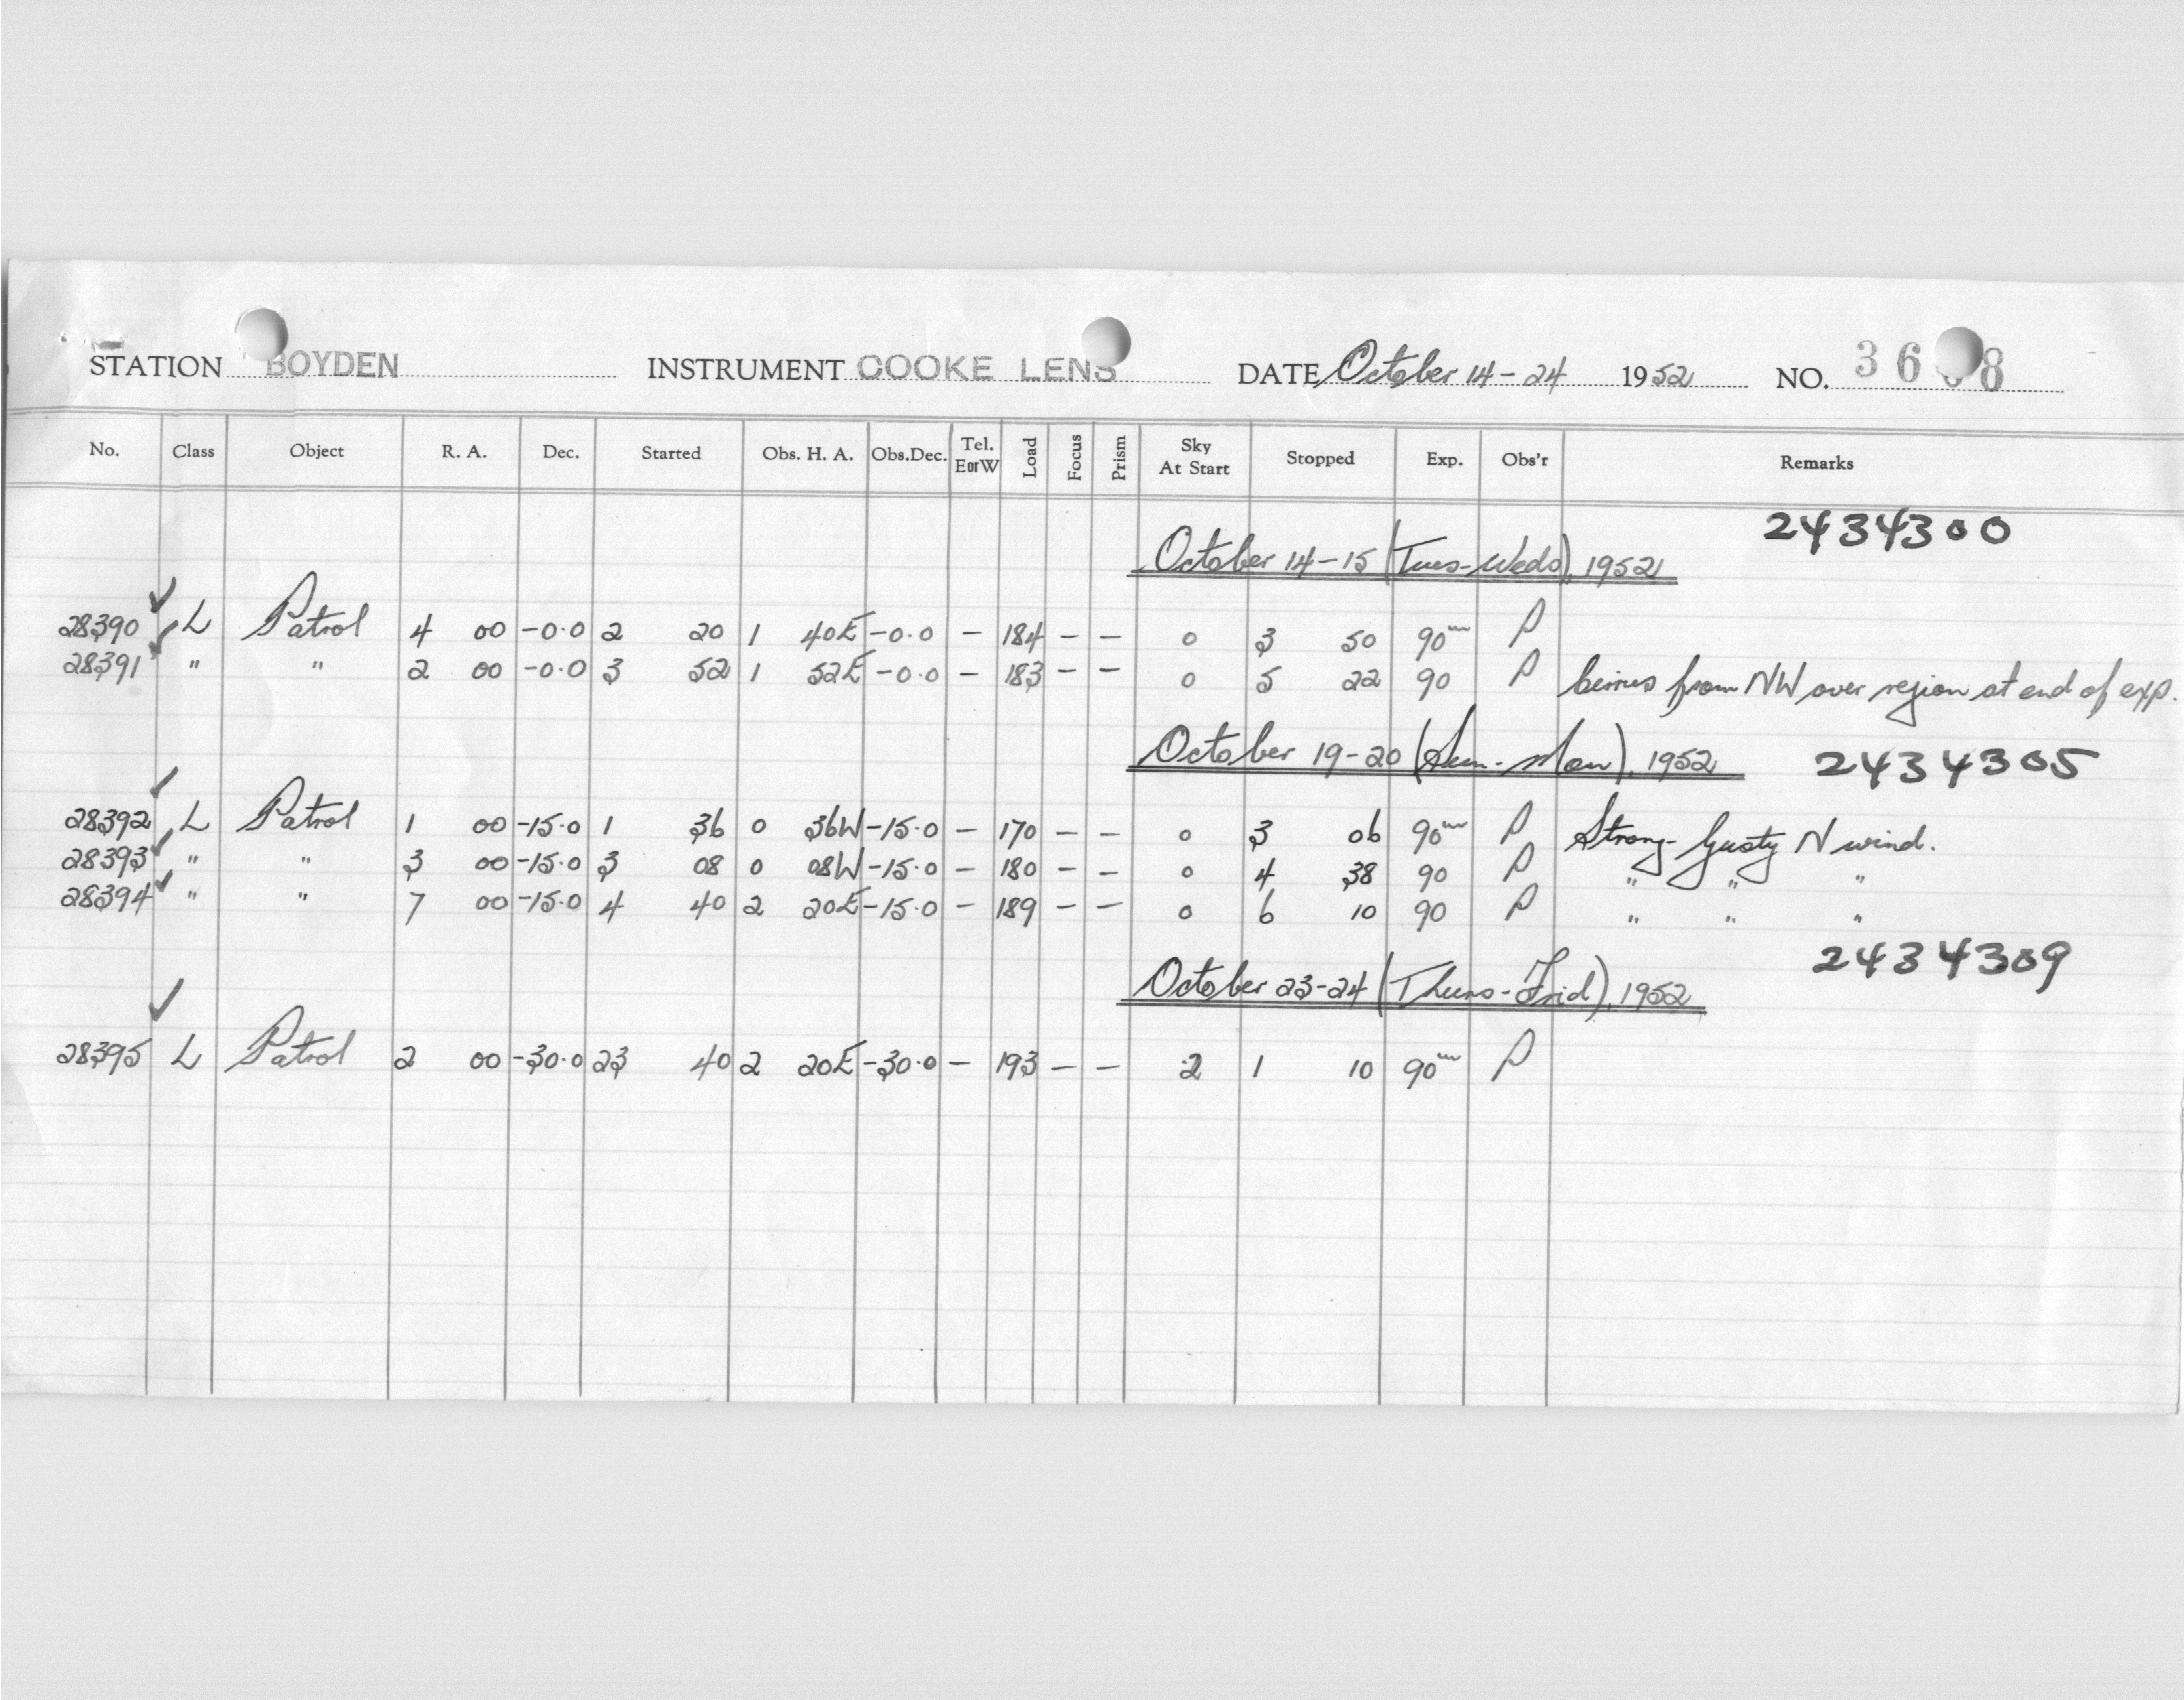 STATION BOYDEN INSTRUMENT COOKE LENS DATE October 14-24 1952 NO.
No. Class Object R. A. Dec. Started Obs. H. A. Obs.Dec. Tel. EorW Load Focus Prism Sky At Start Stopped Exp. Obs'r Remarks
2434300
October 14-15 (Tues-Weds), 1952
28390 L Patrol 4 00 -0.0 2 20 1 40E -0.0 - 184 - - 0 3 50 90m P
28391 " " 2 00 -0.0 3 52 1 52E -0.0 - 183 - - 0 5 22 90 P from NW over region at end of exp.
October 19-20 (Sun-Mon), 1952 2434305
28392 L Patrol 1 00 -15.0 1 36 0 36W -15.0 - 170 - - 0 3 06 90m P Strong-Gusty N wind.
28393 " " 3 00 -15.0 3 08 0 08W -15.0 - 180 - - 0 4 38 90 P " " "
28394 " " 7 00 -15.0 4 40 2 20E -15.0 - 189 - - 0 6 10 90 P " " "
2434309
October 23-24 (Thurs-Frid), 1952
28395 L Patrol 2 00 -30.0 23 40 2 20E -30.0 - 193 - - 2 1 10 90m P